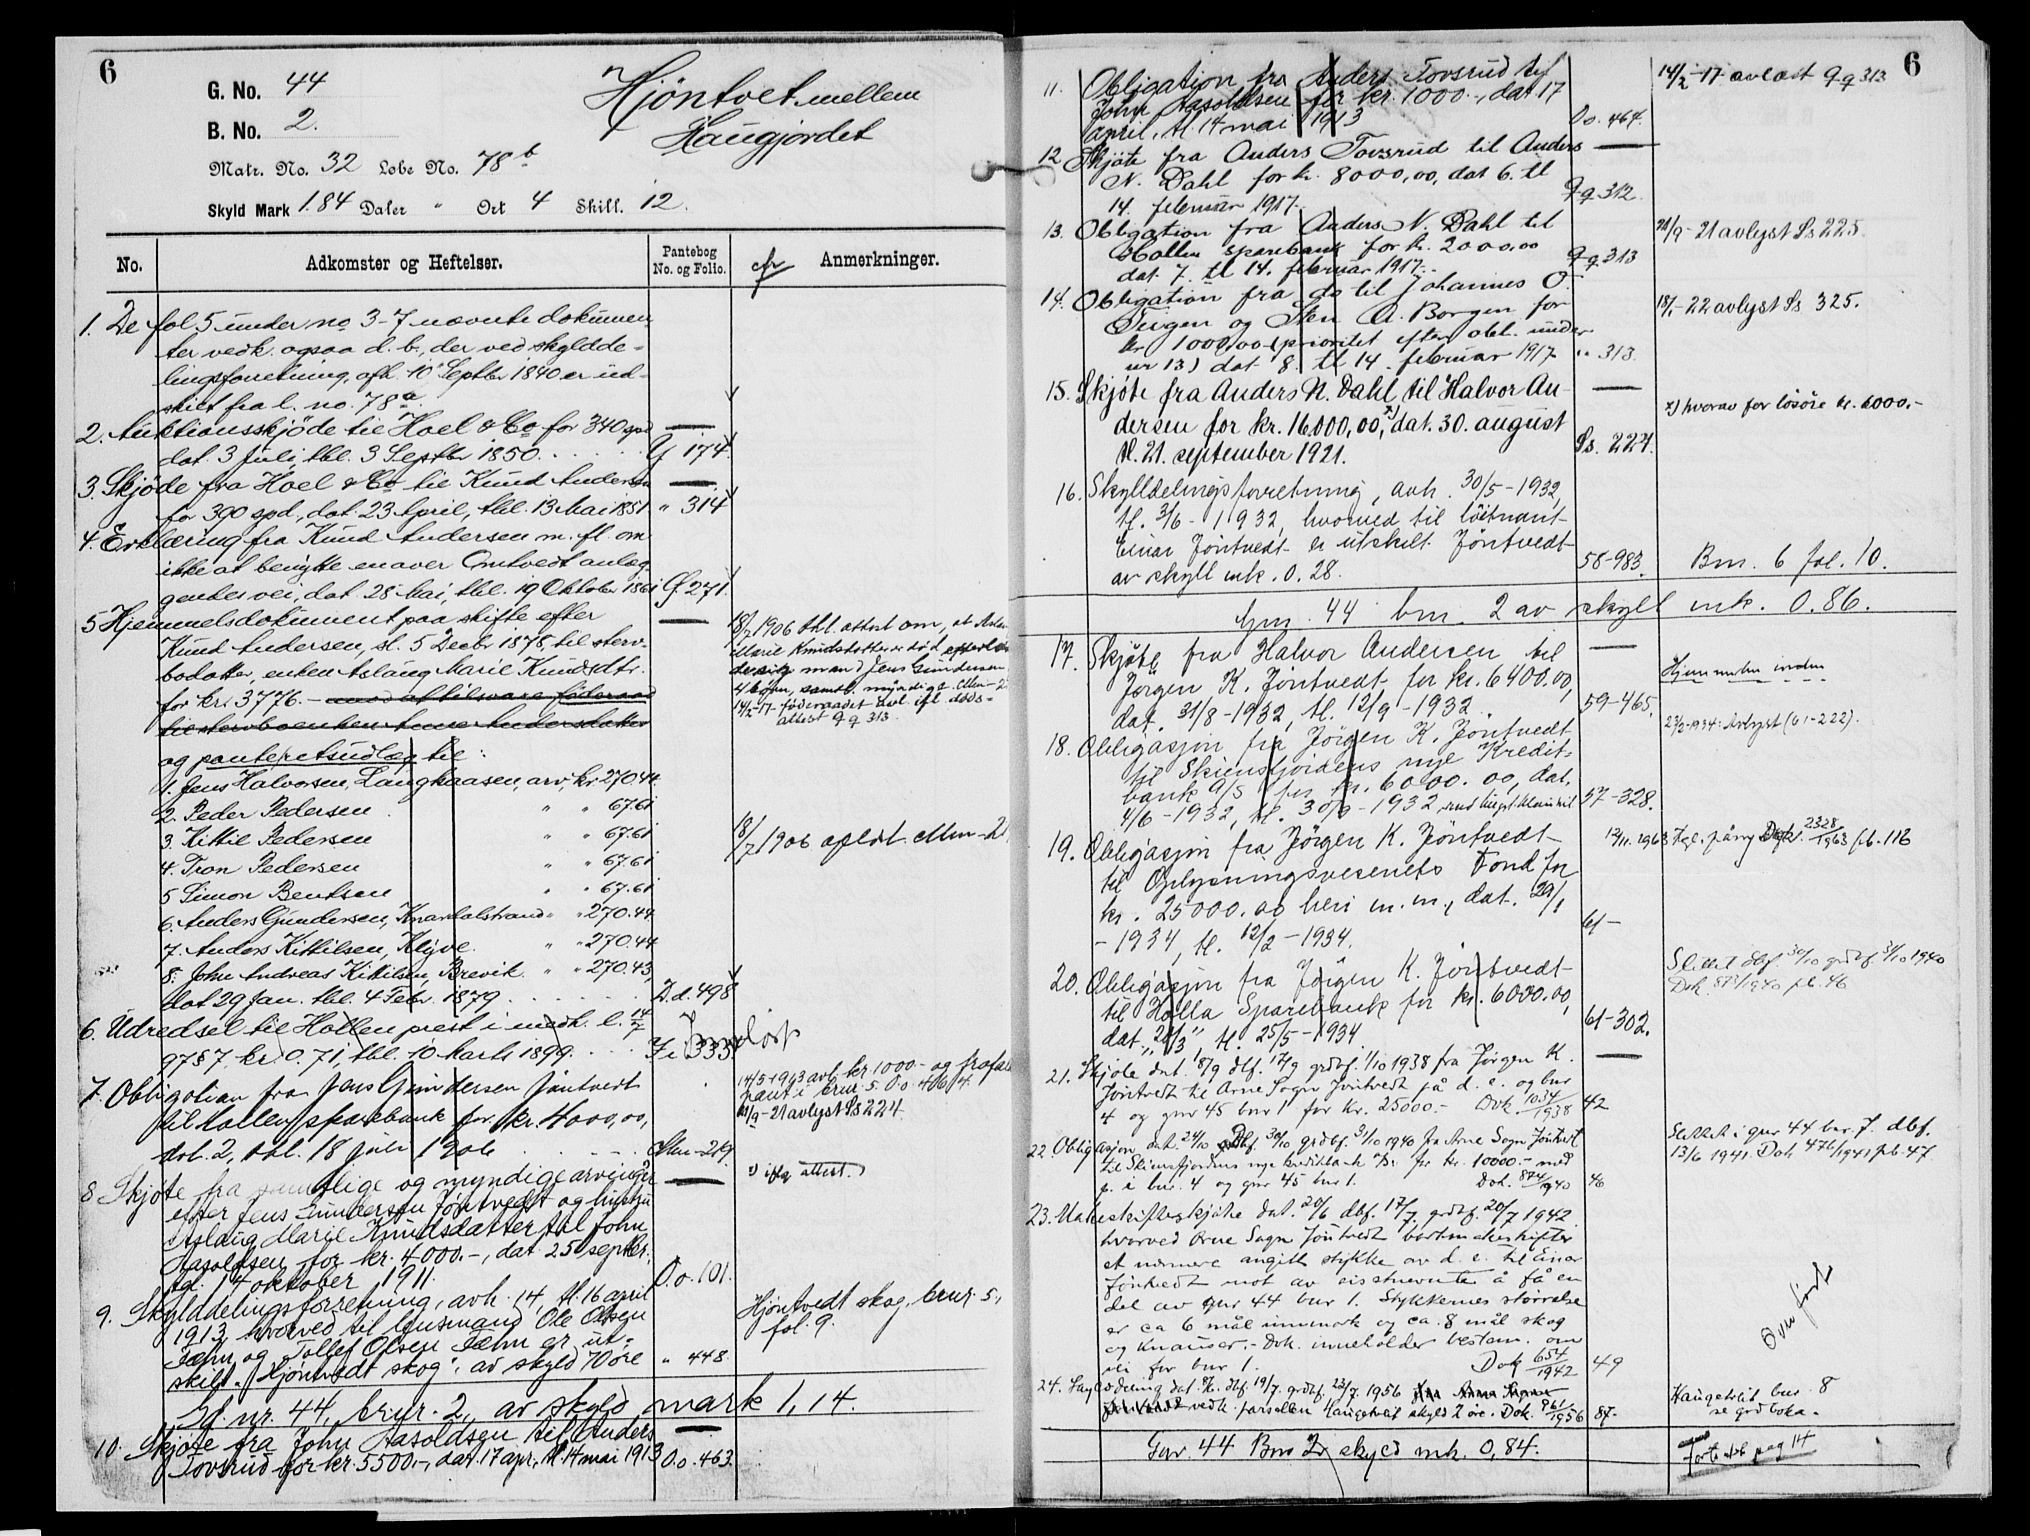 6
G. No. 44
B. No. 2.
Hjöntvet mellem
Haugjordet
Matr. No. 32 Løbe No. 78 b
Skyld Mark 1.84 Daler " Ort 4 Skill. 12.
No. Adkomster og Heftelser. Pantebog No. og Folio. cfr Anmerkninger.
1. De fol 5 under no 3-7 nævnte dokumen-
ter vedk. ogsaa d. b., der ved skyldde-
lingsforretning, afh. 10 Septbr 1840 er ud-
skilt fra l. no. 78 a.
2. Auktionsskjöde til Hoel & Co for 340 spd
dat. 3 Juli, thl. 3 Septbr 1850 . . . . . Y 174.
3. Skjöde fra Hoel & Co til Knud Andersen
for 390 spd., dat 23 April, thl. 13 Mai 1851 " 314
4. Erklæring fra Knud Andersen m. fl. om
ikke at benytte en over Omtvedt anlæg-
gendes vei, dat. 28 Mai, thl. 19 Oktober 1861 Ø 271.
5 Hjemmelsdokument paa skifte efter
Knud Andersen, sl. 5 Decbr 1878, til sterv-
bodatter, enken Aslaug Marie Knudsdtr.
for kr. 3776.- mod at tilsvare föderaad
til stervboenken Anne Andersdatter
og panteretsudlæg til:
1. Jens Halvorsen, Langkaasen, arv, kr 270.44
2. Peder Pedersen " " 67.61
3. Kittil Pedersen " " 67.61
4. Tron Pedersen " " 67.61
5 Simon Bentsen " " 67.61
6. Anders Gundersen, Knardalstrand " " 270.44
7. Anders Kittilsen, Klyve. " " 270.44
8. John Andreas Kittilsen, Brevik. " " 270.43,
dat 29 Jan. thl. 4 Febr. 1879 . . . . . Z.d. 498
18/7 1906 thl. attest om, at Aslaug
Marie Knudsdatter er død efterla-
dende sig mand Jens Gundersen
4 børn, saml. myndige. Mm-2
14/2-17 föderaadet avl. ifl. døds-
attest Qq 313.
18/7 1906 aflæst. Mm-21
6. Udredsel til Hollen prest i medh. l. 14/7
97 § 7, kr. 0.71, thl. 10 Marts 1899. . . . Ff 333
7. Obligation fra Jens Gundersen Jöntvedt
til Hollen sparebank for kr. 4000,00,
dat. 2, thl. 18 juli 1906 . . . . Mm-219.
14/5-1913 avb. kr. 1000.- og frafalt
pant i brnr. 5. Oo. 406/4.
21/9-21 avlyst Ss 224
8 Skjöte fra samtlige og myndige arvinger x)
efter Jens Gundersen Jöntvedt og hustru
Aslaug Marie Knudsdatter til John
Aasoldsen for kr. 4000.-, dat 25 septbr.
thl. 14 oktober 1911. Oo. 101.
x) iflg attest.
9. Skylddelingsforretning, avh. 14, tl. 16 april
1913, hvorved til lensmand Ole Olsen
Fæhn og Tollef Olsen Fæhn er ut-
skilt "Hjöntvedt skog", av skyld 70 øre " 448.
Hjöntvedt skog, brnr. 5,
fol. 9.
Gd. nr. 44, brnr. 2, av skyld mark 1,14.
10. Skjöte fra John Aasoldsen til Anders
Tovsrud for kr. 5500.-, dat. 17 apr., tl. 14 mai 1913 Oo. 463.
6
11. Obligation fra Anders Tovsrud til
John Aasoldsen for kr. 1000.-, dat 17
april, tl. 14 mai 1913 Oo. 464.
14/2-17 avlæst Qq 313
12 Skjöte fra Anders Tovsrud til Anders
N. Dahl for kr. 8000,00, dat 6. tl
14. februar 1917. Qq 312.
13. Obligation fra Anders N. Dahl til
Hollen sparebank for kr. 2000,00
dat. 7. tl 14. februar 1917. Qq 313
21/9-21 avlyst Ss 225.
14. Obligation fra do til Johannes O.
Teigen og Sten A. Borgen for
kr 1000,00 (prioritet efter obl. under
nr 13) dat 8. tl 14. februar 1917 " 313.
18/1-22 avlyst Ss 325.
15. Skjöte fra Anders N. Dahl til Halvor An-
dersen for kr. 16000,00, x) dat. 30. august
tl. 21. september 1921. Ss. 227.
x) hvorav for løsøre kr. 6000.-
16. Skylldelingsforretning, avh. 30/5-1932,
tl. 3/6-1932, hvorved til löitnant
Einar Jöntvedt er utskilt Jöntvedt
av skyll mk. 0.28. 58-983. Bnr. 6 fol. 10.
Gnr. 44 bnr. 2 av skyll mk. 0.86.
17. Skjöte fra Halvor Andersen til
Jørgen K. Jöntvedt for kr. 6400.00,
dat. 31/8-1932, tl. 12/9-1932. 59-465.
18. Obligasjon fra Jörgen K. Jöntvedt
til Skiensfjordens nye Kredit-
bank A/S for kr. 6000.00, dat.
4/6-1932, tl. 30/9-1932 57-328.
19. Obligasjon fra Jörgen K. Jöntvedt
til Oplysningsvesenets Fond for
kr. 25000.00 heri m.m., dat. 29/1
-1934, tl. 12/2-1934. 61-
20. Obligasjon fra Jörgen K. Jöntvedt
til Holla Sparebank for kr. 6000.00,
dat. 24/3, tl. 25/5-1934 61-302.
Slettet dbf. 30/10 grdbf. 31/10 1940
21. Skjøte dat. 8/9 dbf. 17/9 grdbf. 1/10 1938 fra Jørgen K.
Jöntvedt til Arne Sogn Jöntvedt på d. e. og bnr
4 og gnr 45 bnr 1 for kr. 25000.- Dok 1034/1938 42
22. Obligasjon dat. 24/10 dbf. 30/10 grdbf. 31/10 1940 fra Arne Sogn Jöntvedt
til Skiensfjordens nye kreditbank for kr. 10000.- med
p. i bnr. 4 og gnr 45 bnr 1. Dok. 874/1940 46
Slettet i gnr 44 bnr. 7. dbf.
13/6 1941. Dok 476/1941 pb. 47
23. Makeskifteskjøte dat. 20/6 dbf. 17/7 grdbf. 20/7 1942
hvorved Arne Sogn Jöntvedt bortmakeskifter
et nærmere angitt stykke av d. e. til Einar
Jöntvedt mot av sisstnevnte å få en
del av gnr 44 bnr 1. Stykkernes størrelse
er ca 6 mål innmark og ca. 8 mål skog
og knauser.- Dok. inneholder bestem. om
vei for bnr 1. Dok 654/1942 49
Overført
24. dbf. 19/7. grdbf. 23/7. 1956
vedk. parsellen Haugetveit skyld 2 öre. Dok. 961/1956 87.
Haugetveit bnr. 8
se grdboka.
Gnr. 44 Bnr 2, skyld mk. 0,84.
Forts. pag 14